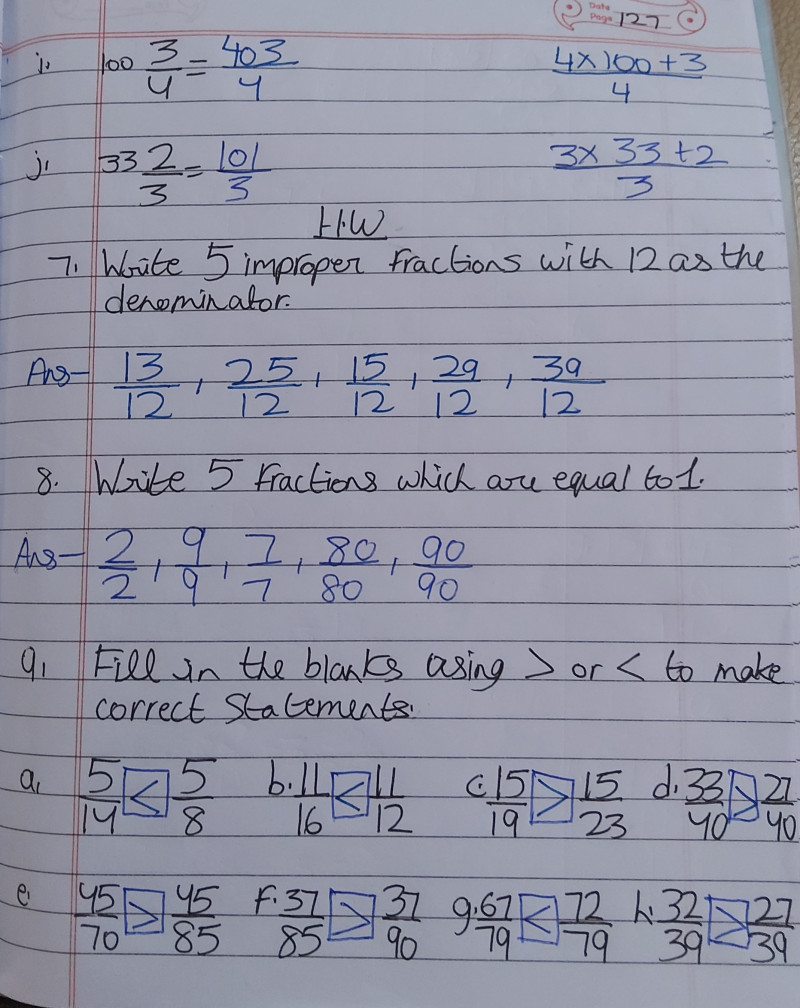 Date
Page 127
i. 100 3/4 = 403/4 4×100+3/4
j. 33 2/3 = 101/3 3×33+2/3
H.W
7. Write 5 improper fractions with 12 as the
denominator.
Ans- 13/12, 25/12, 15/12, 29/12, 39/12
8. Write 5 fractions which are equal to 1.
Ans- 2/2, 9/9, 7/7, 80/80, 90/90
9. Fill in the blanks using > or < to make
correct statements.
a. 5/14 < 5/8 b. 11/16 < 11/12 c. 15/19 > 15/23 d. 33/40 > 27/40
e. 45/70 > 45/85 f. 37/85 > 37/90 g. 67/79 < 72/79 h. 32/39 > 27/39